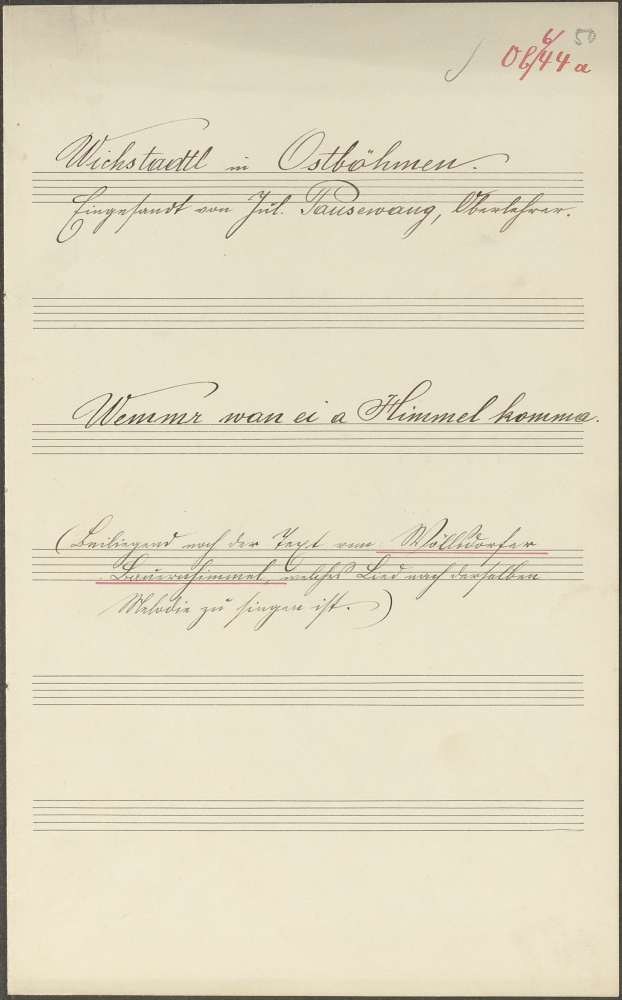 50
6
Ob/44 a
Wichstadtl in Ostböhmen.
Eingesandt von Jul. Pausewang, Oberlehrer.
Wemmr wan ei a Himmel komma.
(Beiliegend noch der Text vom Wöllsdorfer
Bauernhimmel, welches Lied nach derselben
Melodie zu singen ist.)